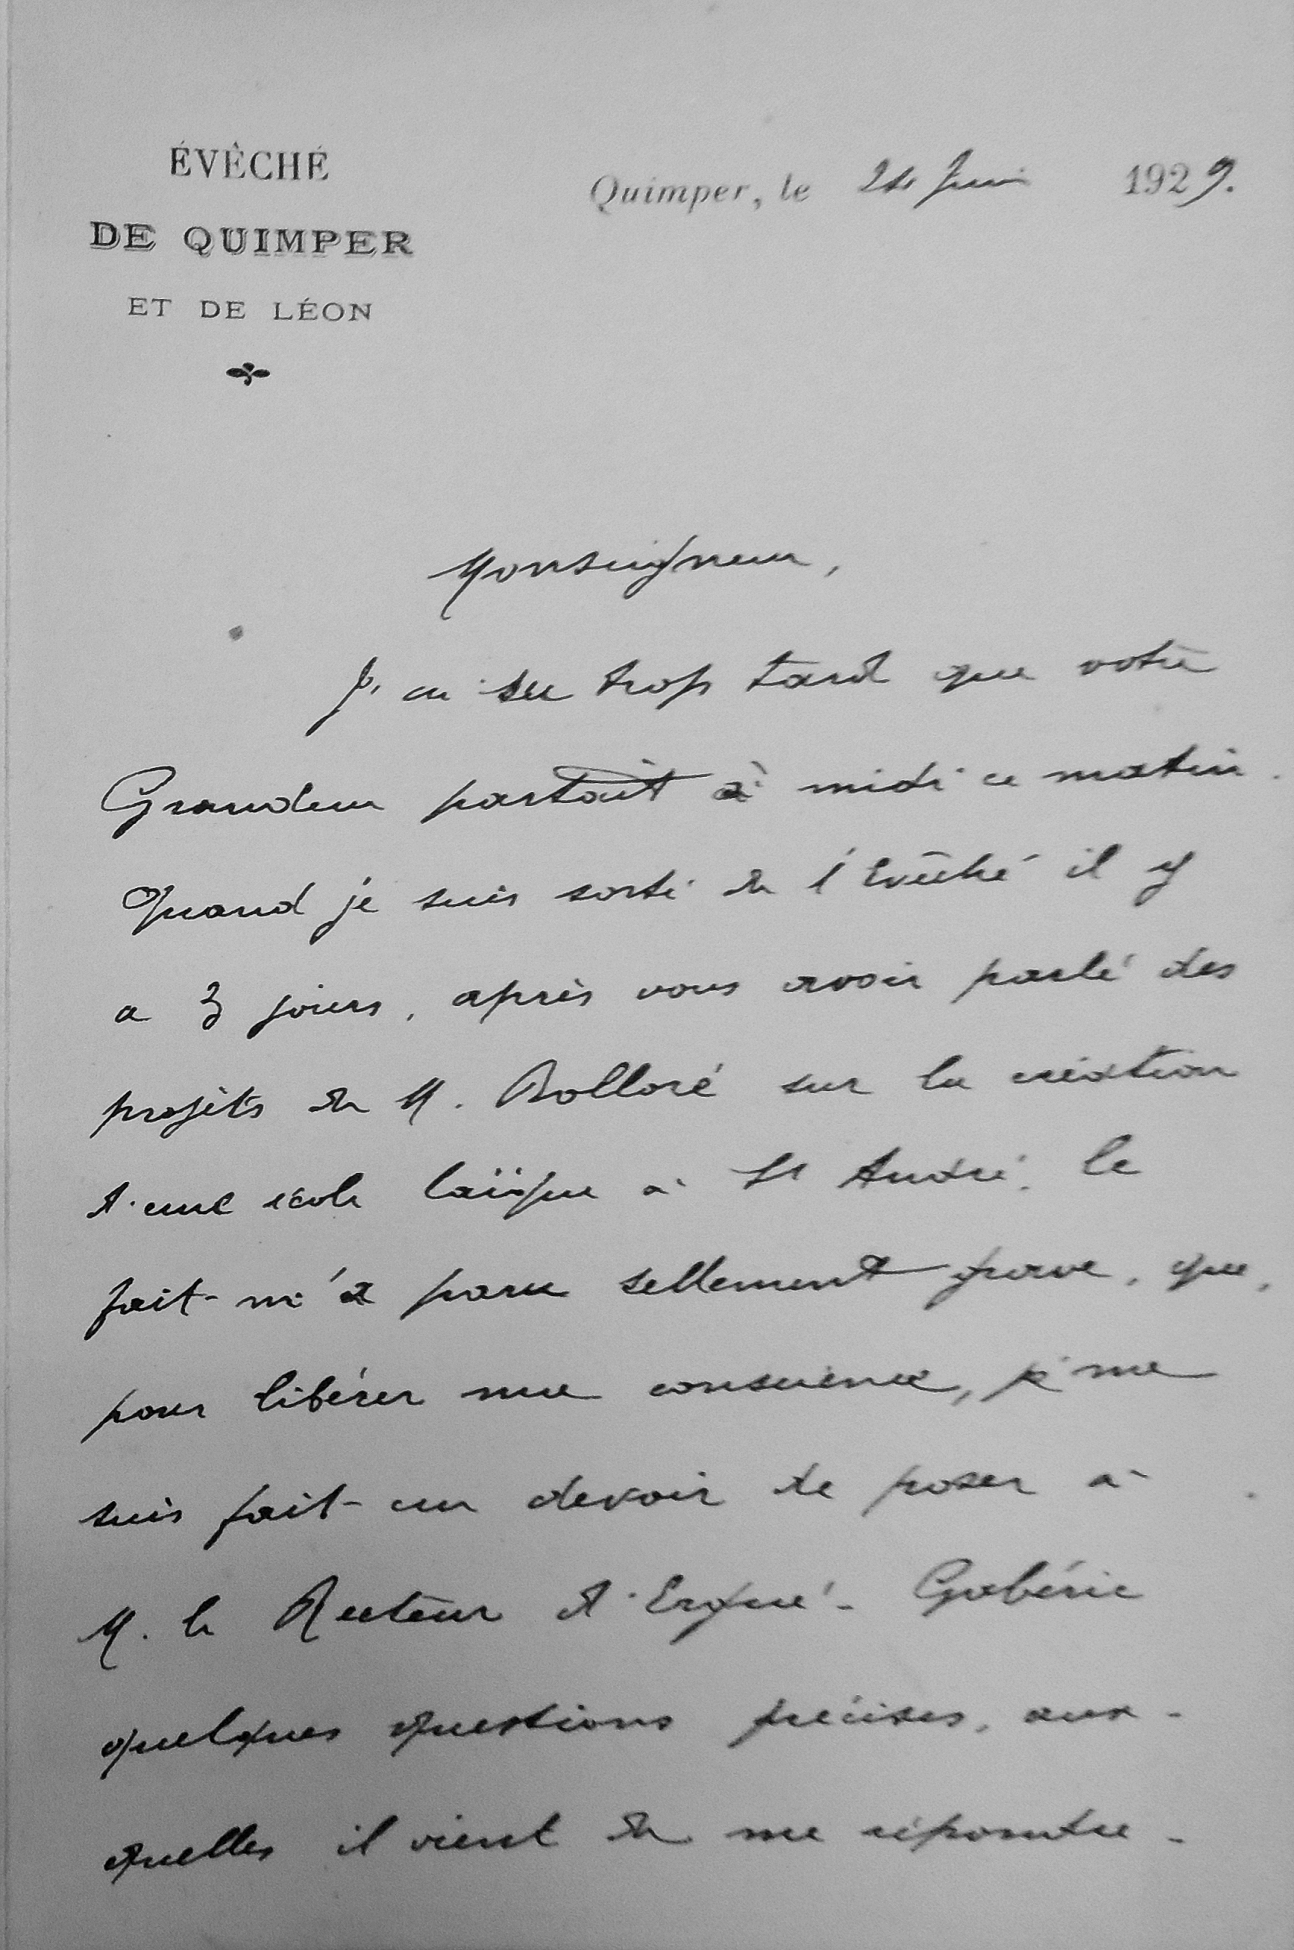 ÉVÊCHÉ
DE QUIMPER
ET DE LÉON
Quimper, le 24 Juin 1929.
Monseigneur,
J'ai su trop tard que votre
Grandeur partait à midi ce matin.
Quand je suis sorti de l'Evêché il y
a 3 jours, après vous avoir parlé des
projets de M. Bolloré sur la création
d'une école laïque à St André, le
fait m'a paru tellement grave, que,
pour libérer ma conscience, je me
suis fait un devoir de poser à
M. le Recteur d'Ergué-Gabéric
quelques questions précises, aux-
quelles il vient de me répondre -